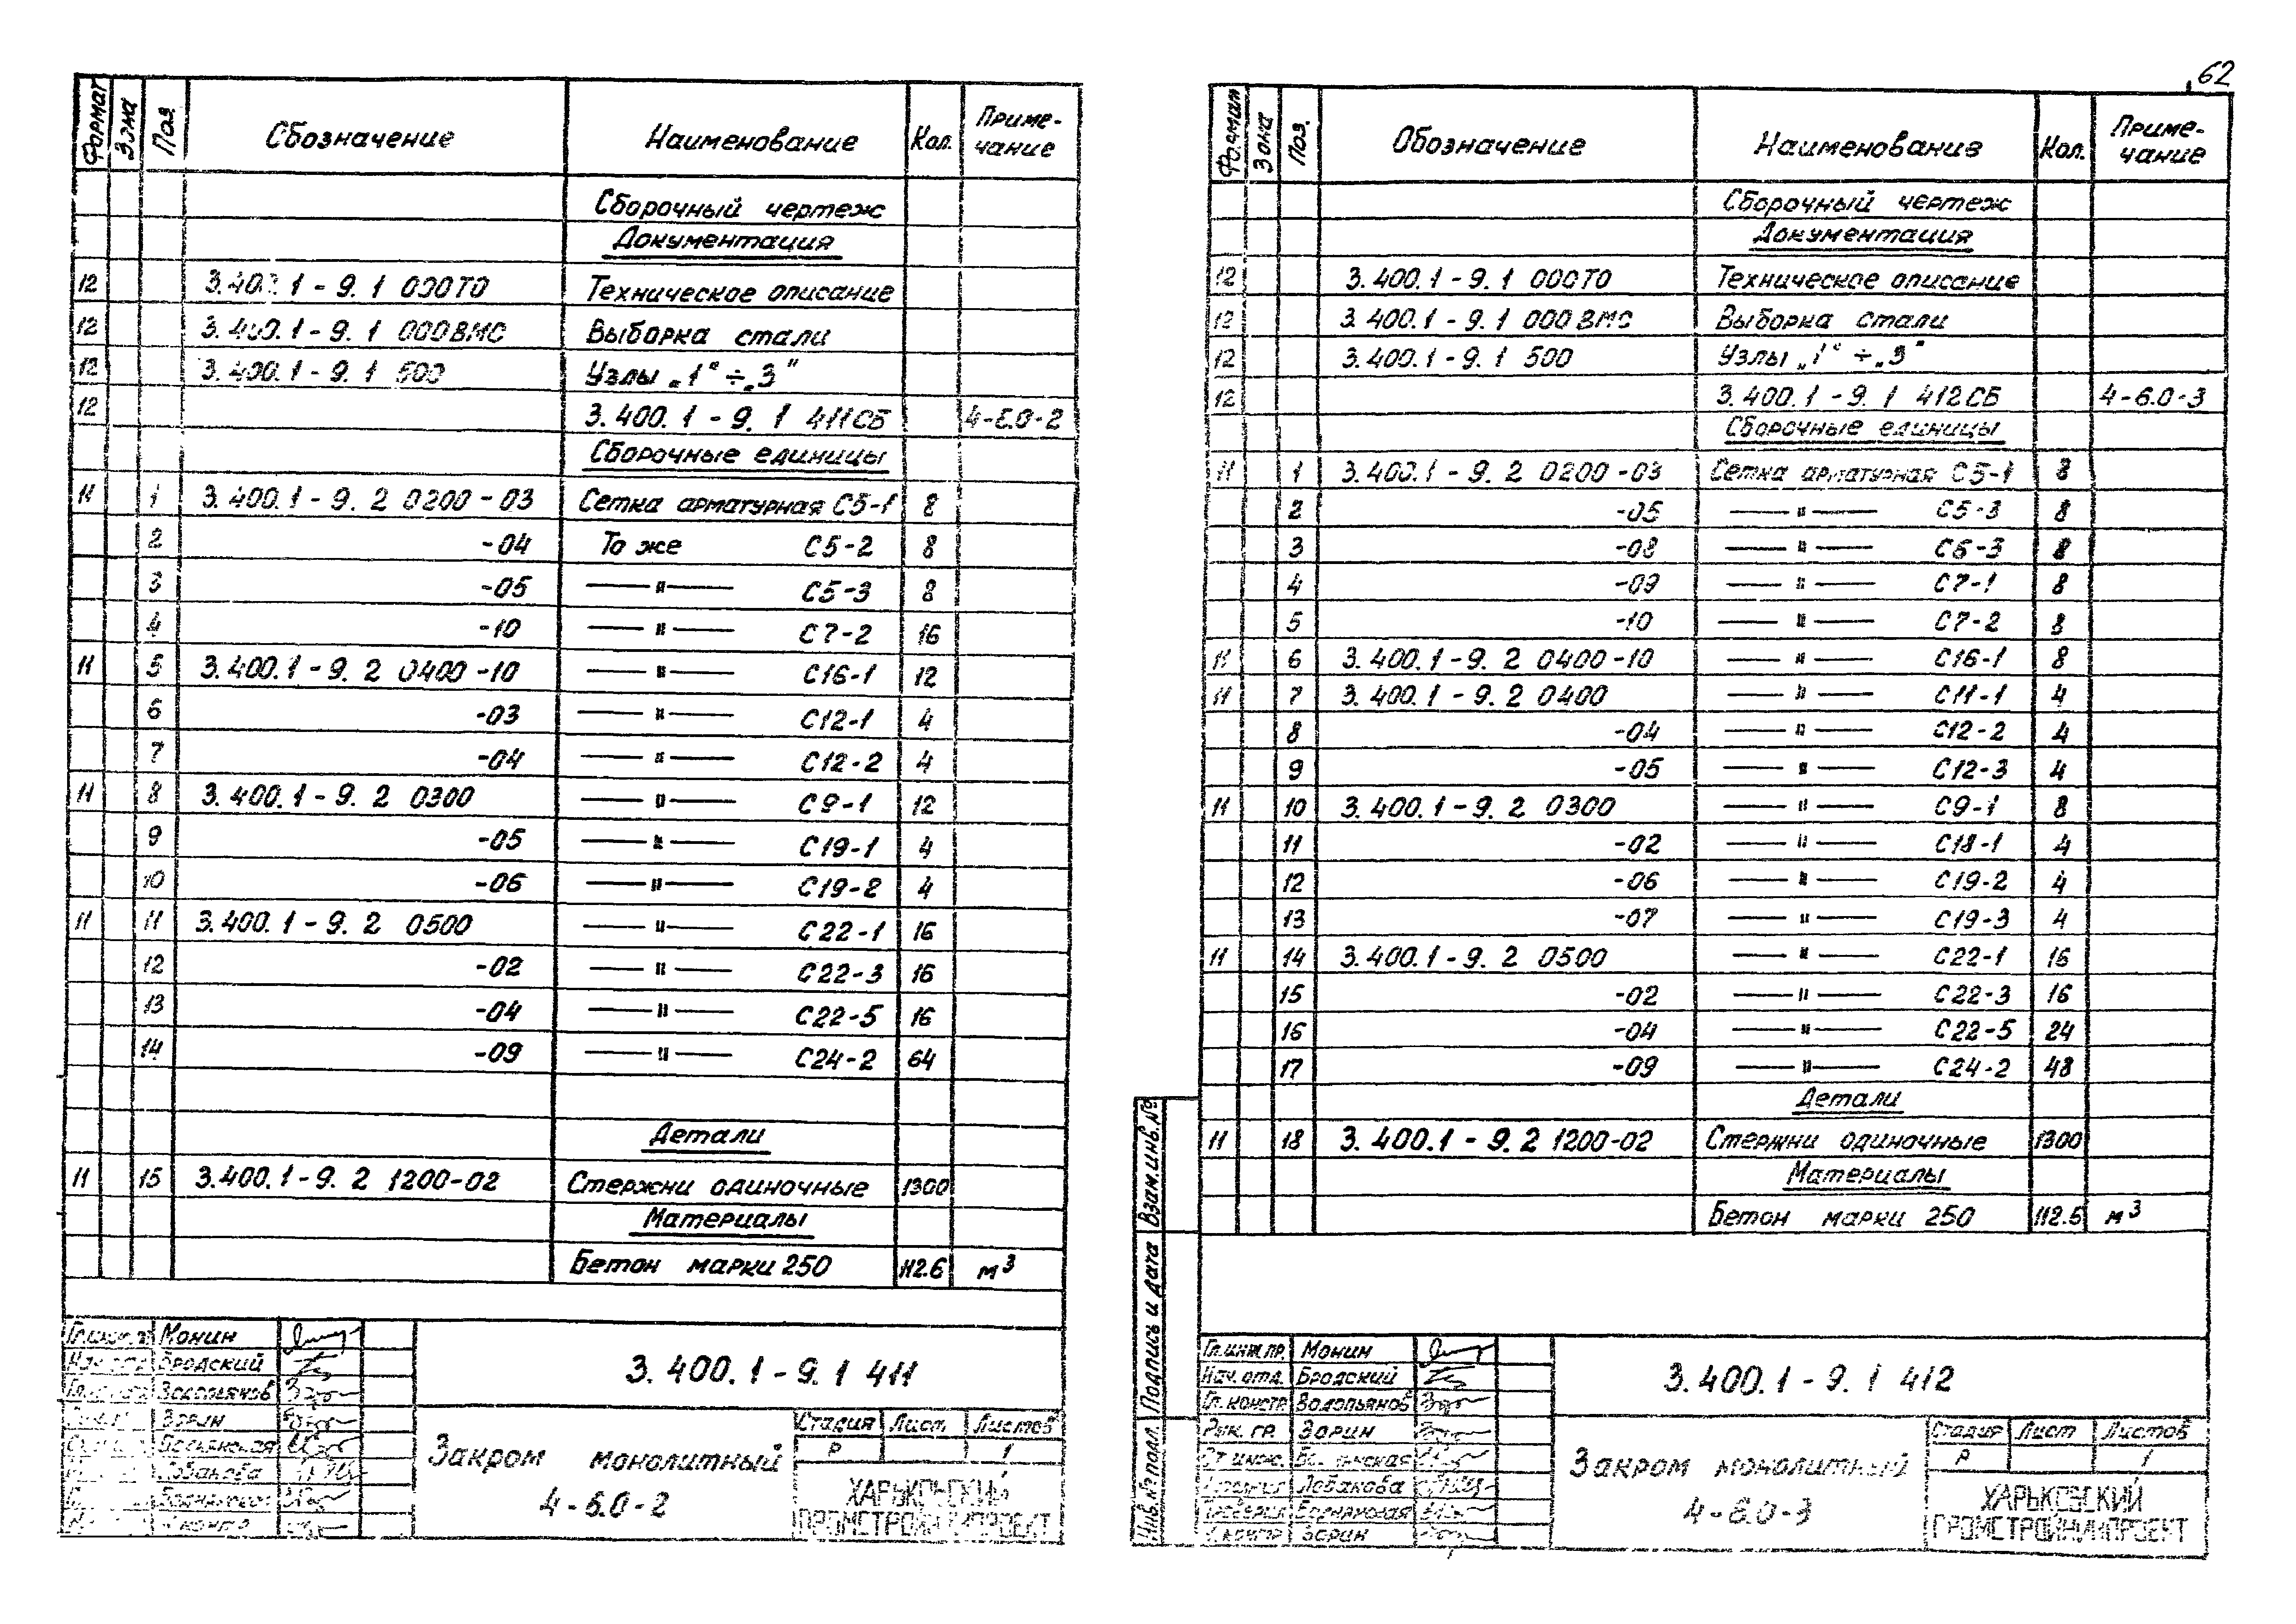 62
Формат Зона Поз. Обозначение Наименование Кол. Приме-
чание
Сборочный чертеж
Документация
12 3.400.1-9.1 000ТО Техническое описание
12 3.400.1-9.1 000ВМС Выборка стали
12 3.400.1-9.1 500 Узлы „1"÷„3"
12 3.400.1-9.1 411СБ 4-6.0-2
Сборочные единицы
11 1 3.400.1-9.2 0200-03 Сетка арматурная С5-1 8
2 -04 То же С5-2 8
3 -05 —"— С5-3 8
4 -10 —"— С7-2 16
11 5 3.400.1-9.2 0400-10 —"— С16-1 12
6 -03 —"— С12-1 4
7 -04 —"— С12-2 4
11 8 3.400.1-9.2 0300 —"— С9-1 12
9 -05 —"— С19-1 4
10 -06 —"— С19-2 4
11 11 3.400.1-9.2 0500 —"— С22-1 16
12 -02 —"— С22-3 16
13 -04 —"— С22-5 16
14 -09 —"— С24-2 64
Детали
11 15 3.400.1-9.2 1200-02 Стержни одиночные 1300
Материалы
Бетон марки 250 112.6 м³
Монин
Бродский
Водопьянов
Зорин
3.400.1-9.1 411
Закром монолитный
4-6.0-2
Стадия Лист Листов
Р 1
ХАРЬКОВСКИЙ
ПРОМСТРОЙНИИПРОЕКТ
Формат Зона Поз. Обозначение Наименование Кол. Приме-
чание
Сборочный чертеж
Документация
12 3.400.1-9.1 000ТО Техническое описание
12 3.400.1-9.1 000ВМС Выборка стали
12 3.400.1-9.1 500 Узлы „1"÷„3"
12 3.400.1-9.1 412СБ 4-6.0-3
Сборочные единицы
11 1 3.400.1-9.2 0200-03 Сетка арматурная С5-1 8
2 -05 —"— С5-3 8
3 -08 —"— С6-3 8
4 -09 —"— С7-1 8
5 -10 —"— С7-2 8
11 6 3.400.1-9.2 0400-10 —"— С16-1 8
11 7 3.400.1-9.2 0400 —"— С11-1 4
8 -04 —"— С12-2 4
9 -05 —"— С12-3 4
11 10 3.400.1-9.2 0300 —"— С9-1 8
11 -02 —"— С18-1 4
12 -06 —"— С19-2 4
13 -07 —"— С19-3 4
11 14 3.400.1-9.2 0500 —"— С22-1 16
15 -02 —"— С22-3 16
16 -04 —"— С22-5 24
17 -09 —"— С24-2 48
Детали
11 18 3.400.1-9.2 1200-02 Стержни одиночные 1300
Материалы
Бетон марки 250 112.6 м³
Инв.№ подл. Подпись и дата Взам.инв.№
Гл.инж.пр. Монин
Нач.отд. Бродский
Гл.констр. Водопьянов
Рук. гр. Зорин
Ст.инж.
Лобакова
Н.контр. Зорин
3.400.1-9.1 412
Закром монолитный
4-6.0-3
Стадия Лист Листов
Р 1
ХАРЬКОВСКИЙ
ПРОМСТРОЙНИИПРОЕКТ